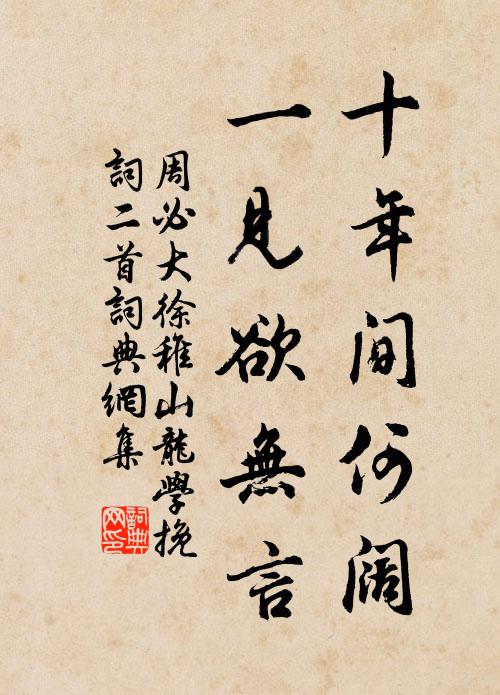 十年間何闊
一見欲無言
周必大徐稚山龍學挽
詞二首詞典網集
詞典网印